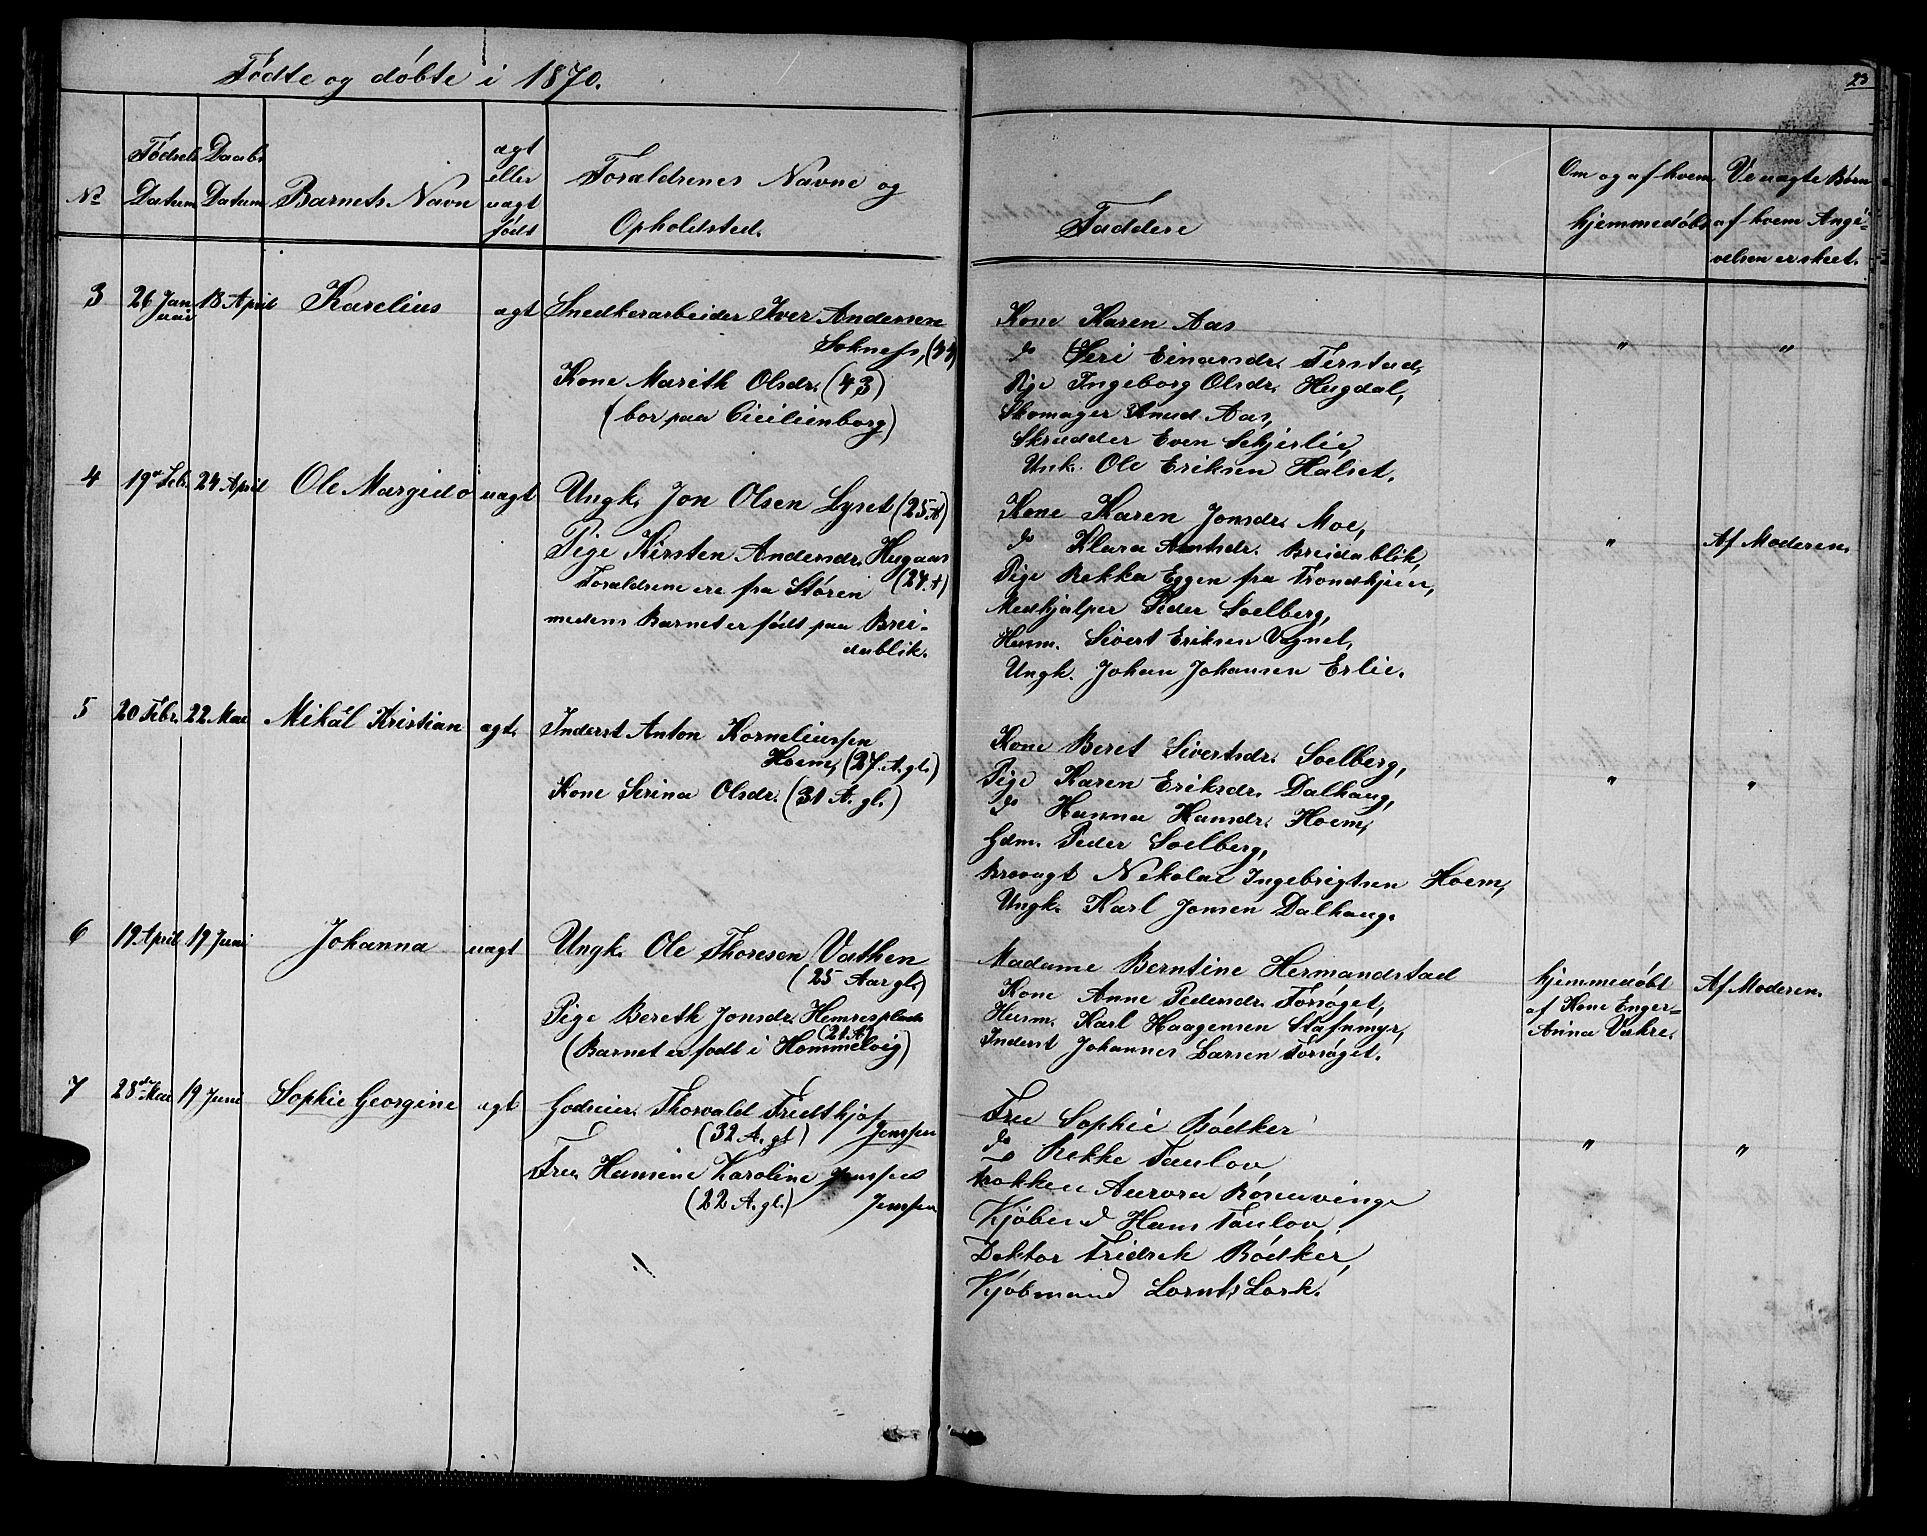 Fødte og døbte i 1870.
23
No
Fødsels Datum
Daabs Datum
Barnets Navn
ægt eller uægt født
Forældrenes Navne og Opholdsted.
Faddere
Om og af hvem hjemmedøbt
Ved uægte Børn af hvem Angivelsen er skeet.
3 26 Januar 18 April Karelius ægt Snedkerarbeider Iver Andersen
Soknes,
Kone Marith Olsdr. (43)
(bor paa Cicilienborg)
Kone Karen Aas
do Seri Einarsdr. Ferstad,
Pige Ingeborg Olsdr. Hugdal,
Skomager Knud Aas,
Skrædder Even Schjerlie,
Unk. Ole Eriksen Halset.
" "
4 19de Feb. 24 April Ole Margido uægt Ungk. Jon Olsen Lyset (25 A)
Pige Kirsten Andersdr. Hugaas
(24 A)
Forældrene ere fra Støren
medens Barnet er født paa Brei-
dablik.
Kone Karen Jonsdr. Moe,
do Klara Arntsdr. Breidablik,
Pige Rekka Eggen fra Trondhjem,
Medhjælper Peder Solberg,
Husm. Sivert Eriksen Vognet,
Ungk. Johan Johansen Erlie.
" Af Moderen.
5 20 Febr. 22 Mai Mikal Kristian ægt. Inderst Anton Korneliussen
Hoem, (27 A. gl.)
Kone Serina Olsdr. (31 A. gl.)
Kone Beret Sivertsdr. Soelberg,
Pige Karen Eriksdr. Dalhaug,
do Hanna Hansdr. Hoem,
Gdm. Peder Soelberg,
Brovagt Nikolai Ingebrigtsen Hoem,
Ungk. Karl Jonsen Dalhaug.
" "
6 19 April 19 Juni Johanna uægt Ungk. Ole Thoresen Vathen
(25 Aar gl.)
Pige Bereth Jonsdr. Hemresplads
(21 A)
(Barnet er født i Hommelvig)
Madame Berntine Hermandstad
Kone Anne Pedersdr. Forsøget,
Husm. Karl Haagensen Stafnmyr,
Inderst Johannes Larsen Forsøget.
hjemmedøbt
af Kone Enger-
Anna Vækre.
Af Moderen.
7 28de Mai 19 Juni Sophie Georgine ægt Godseier Thorvald Fredthjof
(32 A. gl) Jenssen
Fru Hansine Karoline Jenssen
(22 A. gl.) Jenssen
Fru Sophie Bödker
do Rekke Taulov,
Frøken Aurora Rosenvinge
Kjøbmand Hans Taulov,
Doktor Fridrik Bödker,
Kjøbmand Lornts Lork.
" "